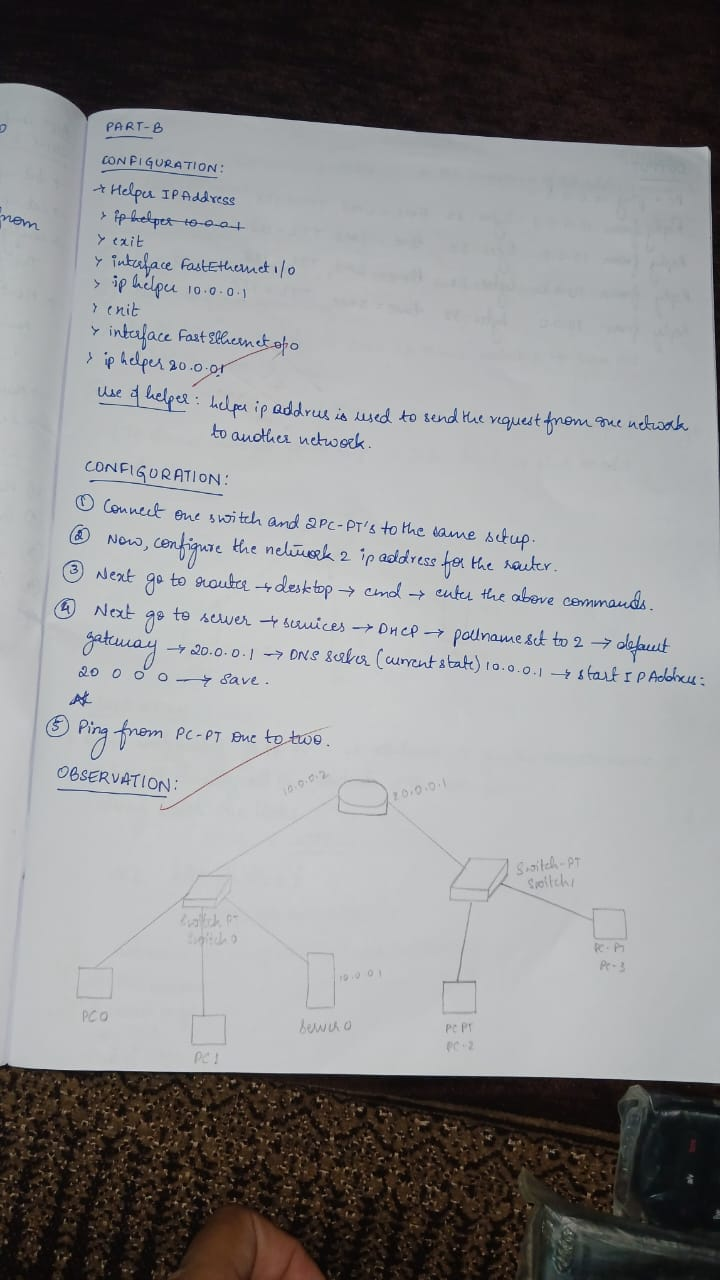 PART-B
CONFIGURATION:
* Helper IP Address
> ip helper 10.0.0.1
> exit
> interface FastEthernet 1/0
> ip helper 10.0.0.1
> exit
> interface FastEthernet 0/0
> ip helper 20.0.0.1
Use of helper: helper ip address is used to send the request from one network
to another network.
CONFIGURATION:
① Connect one switch and 2PC-PT's to the same setup.
② Now, configure the network 2 ip address for the router.
③ Next go to router → desktop → cmd → enter the above commands.
④ Next go to server → services → DHCP → poll name set to 2 → default
gateway → 20.0.0.1 → DNS server (current state) 10.0.0.1 → start IP Address:
20 0 0 0 → save.
⑤ Ping from PC-PT one to two.
OBSERVATION:
10.0.0.2
20.0.0.1
Switch-PT
Switch1
Switch PT
Switch 0
PC-PT
PC-3
10.0.0.1
PC0
Server 0
PC PT
PC-2
PC1
from